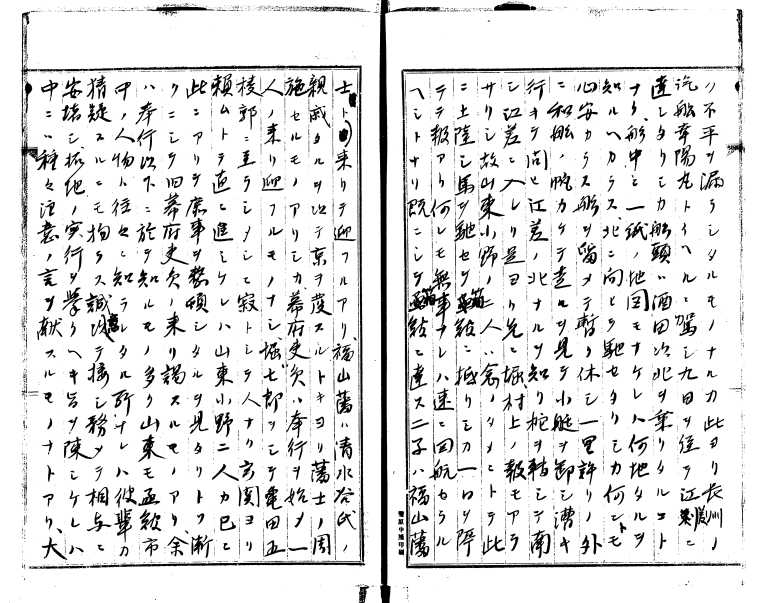 ノ不平ヲ漏ラシタルモノナルカ此ヨリ長州ノ
汽船華陽丸トイヘルニ駕シ九日ヲ経テ江差ニ
達シタリシカ船頭ハ酒田以北ヲ乗リタルコト
ナク船中ニ一紙ノ地図モナケレハ何地タルヲ
知ルヘカラス北ニ向ヒテ馳セタリシカ何トモ
心安カラス船ヲ留メテ暫ク休シ一里許リノ外
ニ和船ノ帆カケテ走ルヲ見テ小艇ヲ卸シ漕キ
行キテ問ヒ江差ノ北ナルヲ知リ舵ヲ転シテ南
シ江差ニ入レリ是ヨリ先ニ堀村上ノ報モアラ
サリシ故山東小野ノ二人ハ念ノタメニトテ此
ニ上陸シ馬ヲ馳セ箱館ニ抵リシカ一ロヲ隔
テテ報アリ何レモ無事ナレハ速ニ回航セラル
ヘシトナリ既ニシテ箱館ニ達ス二子ハ福山藩
士ト来リテ迎フルアリ福山藩ハ清水谷氏ノ
親戚タルヲ以テ京ヲ発スルトキヨリ藩士ノ周
施セルモノアリシカ幕府吏员ハ奉行ヲ始メ一
人ノ来リ迎フルモノナシ堀七郎ツシテ亀田五
稜郭ニ至ラシメシニ寂トシテ人ナク玄関ヨリ
頼ムトテ直ニ進ミケレハ山東小野二人カ已ニ
此ニアリテ庶事ヲ整頓シタルヲ見タリトソ漸
クニシテ旧幕府吏员ノ来リ謁スルモノアリ余
ハ奉行以下ニ於テ知ルモノ多ク山東モ函館市
中ノ人物ト往々ニ知ラレタル所ナレハ彼輩カ
猜疑スルニモ拘ラス誠意テ接シ務メテ相与ニ
安堵シ拓地ノ実行ヲ挙クヘキ旨ヲ陳シケレハ
中ニハ種々注意ノ言ヲ献スルモノナトアリ大